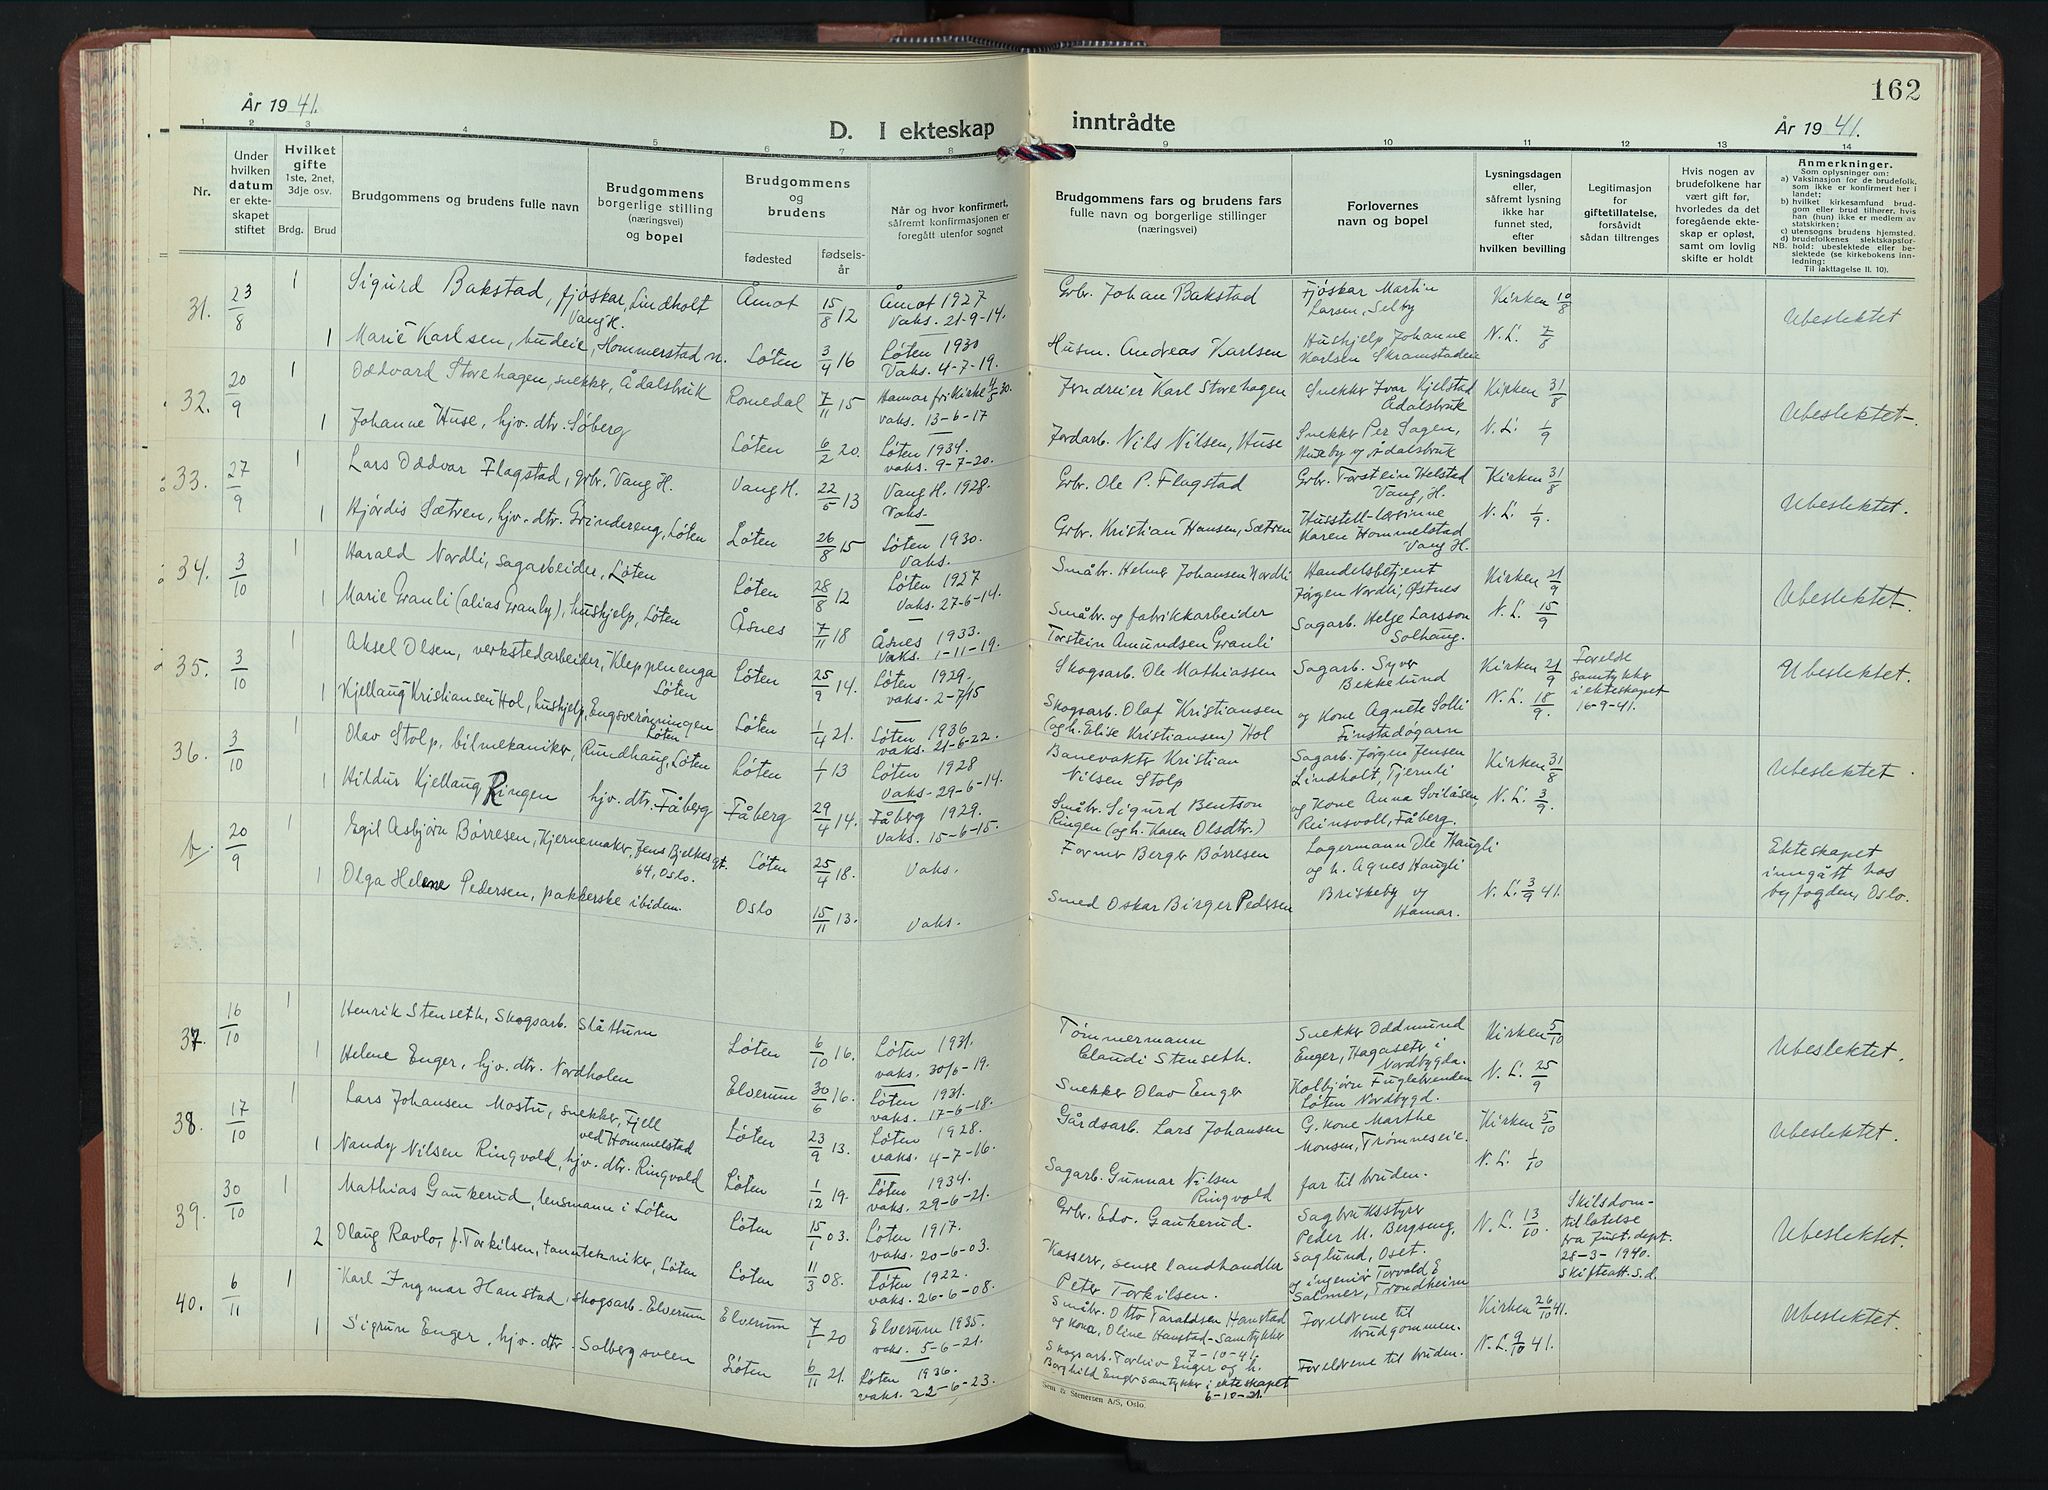 162
År 1941.
D. I ekteskap inntrådte
År 1941.
1 2 3 4 5 6 7 8 9 10 11 12 13 14
Nr.
Under hvilken datum er ekteskapet stiftet
Hvilket gifte 1ste, 2net, 3dje osv.
Brdg. Brud
Brudgommens og brudens fulle navn
Brudgommens borgerlige stilling (næringsvei) og bopel
Brudgommens og brudens
fødested
fødselsår
Når og hvor konfirmert, såfremt konfirmasjonen er foregått utenfor sognet
Brudgommens fars og brudens fars fulle navn og borgerlige stillinger (næringsvei)
Forlovernes navn og bopel
Lysningsdagen eller, såfremt lysning ikke har funnet sted, efter hvilken bevilling
Legitimasjon for giftetillatelse, forsåvidt sådan tiltrenges
Hvis nogen av brudefolkene har vært gift før, hvorledes da det foregående ekteskap er opløst, samt om lovlig skifte er holdt
Anmerkninger.
Som oplysninger om:
a) Vaksinasjon for de brudefolk, som ikke er konfirmert her i landet;
b) hvilket kirkesamfund brudgom eller brud tilhører, hvis han (hun) ikke er medlem av statskirken;
c) utensogns brudens hjemsted.
d) brudefolkenes slektskapsforhold: ubeslektede eller beslektede (se kirkebokens innledning:
NB.
Til iakttagelse II. 10).
31. 23/8 1 Sigurd Bakstad, fjøskar, Lindholt Vang H. Åmot 15/8 12 Åmot 1927 Vaks. 21-9-14. Grb. Johan Bakstad Fjøskar Martin Larsen, Selby Kirken 10/8 Ubeslektet
1 Marie Karlsen, budeie, Hommerstad n. Løten 3/4 16 Løten 1930 Vaks. 4-7-19. Husm. Andreas Karlsen Hushjelp Johanne Karlsen Skramstadeie N. L. 7/8
32. 20/9 1 Oddvard Storehagen, snekker, Ådalsbruk Romedal 7/11 15 Hamar frikirke 4/5 30. vaks. 13-6-17 Jerndreier Karl Storehagen Snekker Ivar Kjelstad Ådalsbruk Kirken 31/8 Ubeslektet
1 Johanne Huse, hjv. dtr. Søberg Løten 6/2 20. Løten 1934. vaks. 9-7-20. Jordarb. Nils Nilsen, Huse Snekker Per Sagen, Huseby v/ Ådalsbruk N. L. 1/9
33. 27/9 1 Lars Oddvar Flagstad, grbr. Vang H. Vang H. 22/5 13 Vang H. 1928 Vaks. Grbr. Ole P. Flagstad Grbr. Torstein Helstad Vang, H. Kirken 31/8 Ubeslektet.
1 Hjørdis Sætren, hjv. dtr. Grindereng, Løten Løten 26/8 15 Løten 1930. Vaks. Grbr. Kristian Hansen, Sætren Husstell-lærerinne Karen Hommelstad Vang H. N. L. 1/9.
34. 3/10 1 Harald Nordli, sagarbeider, Løten Løten 28/8 12 Løten 1927 Vaks. 27-6-14. Småbr. Helmer Johansen Nordli Handelsbetjent Jørgen Nordli, Østnes Kirken 21/9 Ubeslektet.
1 Marie Granli (alias Granby), hushjelp, Løten Åsnes 7/11 18 Åsnes 1933. Vaks. 1-11-19. Småbr. og fabrikkarbeider Torstein Amundsen Granli Sagarb. Helge Larsson Solhaug. N. L. 15/9
35. 3/10 1 Aksel Olsen, verkstedarbeider, Kleppenenga Løten Løten 25/9 14. Løten 1929. vaks. 2-7/15 Skogsarb. Ole Mathiassen Sagarb. Syver Bekkelund Kirken 21/9 Foreldre samtykker i ekteskapet 16-9-41. Ubeslektet.
1 Kjellaug Kristiansen Hol, hushjelp, Engsverønningen Løten Løten 1/4 21. Løten 1936 vaks. 21-6-22. Skogsarb. Olaf Kristiansen (og h. Elise Kristiansen) Hol og Kone Agnete Solli Finstadøgarn N. L. 18/9.
36. 3/10 1 Olav Stolp, bilmekaniker, Rundhaug, Løten Løten 1/1 13 Løten 1928 Vaks. 29-6-14. Banevakter Kristian Nilsen Stolp Sagarb. Jørgen Jensen Lindholt, Tjernli Kirken 31/8 Ubeslektet.
1 Hildur Kjellaug Ringen hjv. dtr. Fåberg Fåberg 29/4 14. Fåberg 1929. Vaks. 15-6-15. Småbr. Sigurd Bentson Ringen (og h. Karen Olsdtr.) og Kone Anna Svilåsen Reinsvoll, Fåberg. N. L. 3/9.
b. 20/9 1 Egil Asbjørn Børresen, Kjernemaker, Jens Bjelkesgt. 64, Oslo. Løten 25/4 18. Vaks. Former Berger Børresen Lagermann Ole Haugli og h. Agnes Haugli Briskeby v/ Hamar. N. L. 3/9 41. Ekteskapet inngått hos byfogden, Oslo.
1 Olga Helene Pedersen, pakkerske ibidem. Oslo 15/11 13. Vaks. Smed Oskar Birger Pedersen
37. 16/10 1 Henrik Stenseth, Skogsarb. Slåttum Løten 6/10 16. Løten 1931. vaks. 30/6-19. Tømmermann Claudi Stenseth. Snekker Oddmund Enger, Hagaseter i Nordbygda. Kirken 5/10 Ubeslektet.
1 Helene Enger, hjv. dtr. Nordholen Elverum 30/6 16. Løten 1931. vaks. 17-6-18. Snekker Olav Enger Kolbjørn Fuglebrenden Løten Nordbygd. N. L. 25/9
38. 17/10 1 Lars Johansen Mostu, snekker, Fjell ved Hommelstad Løten 23/9 13. Løten 1928. vaks. 4-7-16. Gårdsarb. Lars Johansen G. kone Marthe Monsen, Trømneseie. Kirken 5/10 Ubeslektet.
1 Nandy Nilsen Ringvold, hjv. dtr. Ringvold Løten 1/12 19. Løten 1934. vaks. 29-6-21. Sagarb. Gunnar Nilsen Ringvold far til bruden. N. L. 1/10
39. 30/10 1 Mathias Gaukerud, lensmann i Løten Løten 15/1 03. Løten 1917. vaks. 20-6-03. Grbr. Edv. Gaukerud. Sagbruksstyrer Peder M. Bergseng, Saglund, Oset. N. L. 13/10. Skilsdomtillatelse fra Just. dept. 28-3-1940. Skifteatt. s.d. Ubeslektet.
2 Olaug Ravlo, f. Torkilsen, tanntekniker, Løten Løten 11/3 08. Løten 1922. vaks. 26-6-08. Kasserer, senere landhandler Peter Torkilsen. og ingeniør Torvald E Salmer, Trondheim
40. 6/11 1 Karl Ingmar Hanstad, skogsarb. Elverum Elverum 7/1 20 Elverum 1935. vaks. 5-6-21. Småbr. Otto Taraldsen Hanstad og kona, Oline Hanstad samtykker 7-10-41. Foreldrene til brudgommen. Kirken 26/10 41. Ubeslektet.
1 Sigrun Enger, hjv. dtr. Solbergsveen Løten 6/11 21. Løten 1936. vaks. 22-6-23. Skogsarb. Torleiv Enger og h. Borghild Enger samtykker i ekteskapet 6-10-21. Foreldrene til bruden. N. L. 9/10 41.
Sem & Stenersen A/S, Oslo.